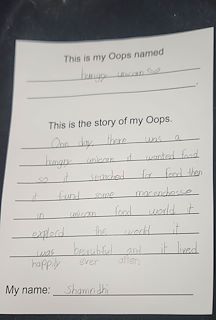 This is my Oops named
hungr unicorn
This is the story of my Oops.
One day there was a
hungr unicorn it wanted food
so it searched for food then
it fund some macencheese
in unicorn food world it
explord the world it
was beautiful and it lived
happily ever after.
My name: Shamridhi